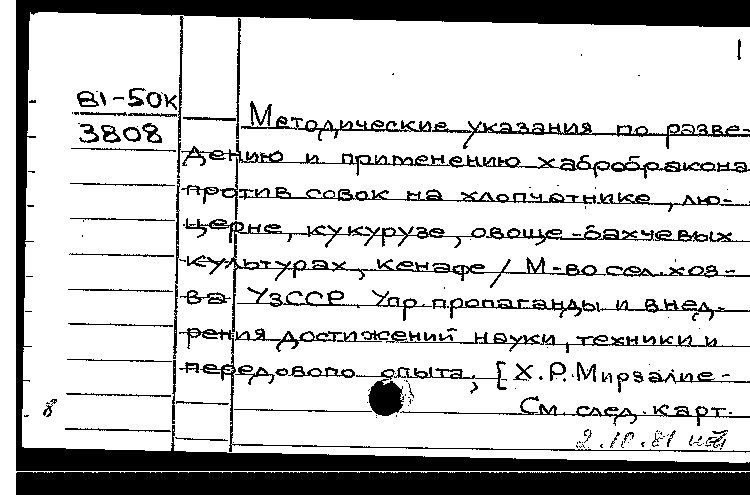 1
81-50К
3808
Методические указания по разве-
дению и применению хабробракона
против совок на хлопчатнике, лю-
церне, кукурузе, овоще-бахчевых
культурах, кенафе / М-во сел. хоз-
ва УзССР. Упр. пропаганды и внед-
рения достижений науки, техники и
передового опыта; [Х.Р. Мирзалие-
См. след. карт.
8
2.10.81